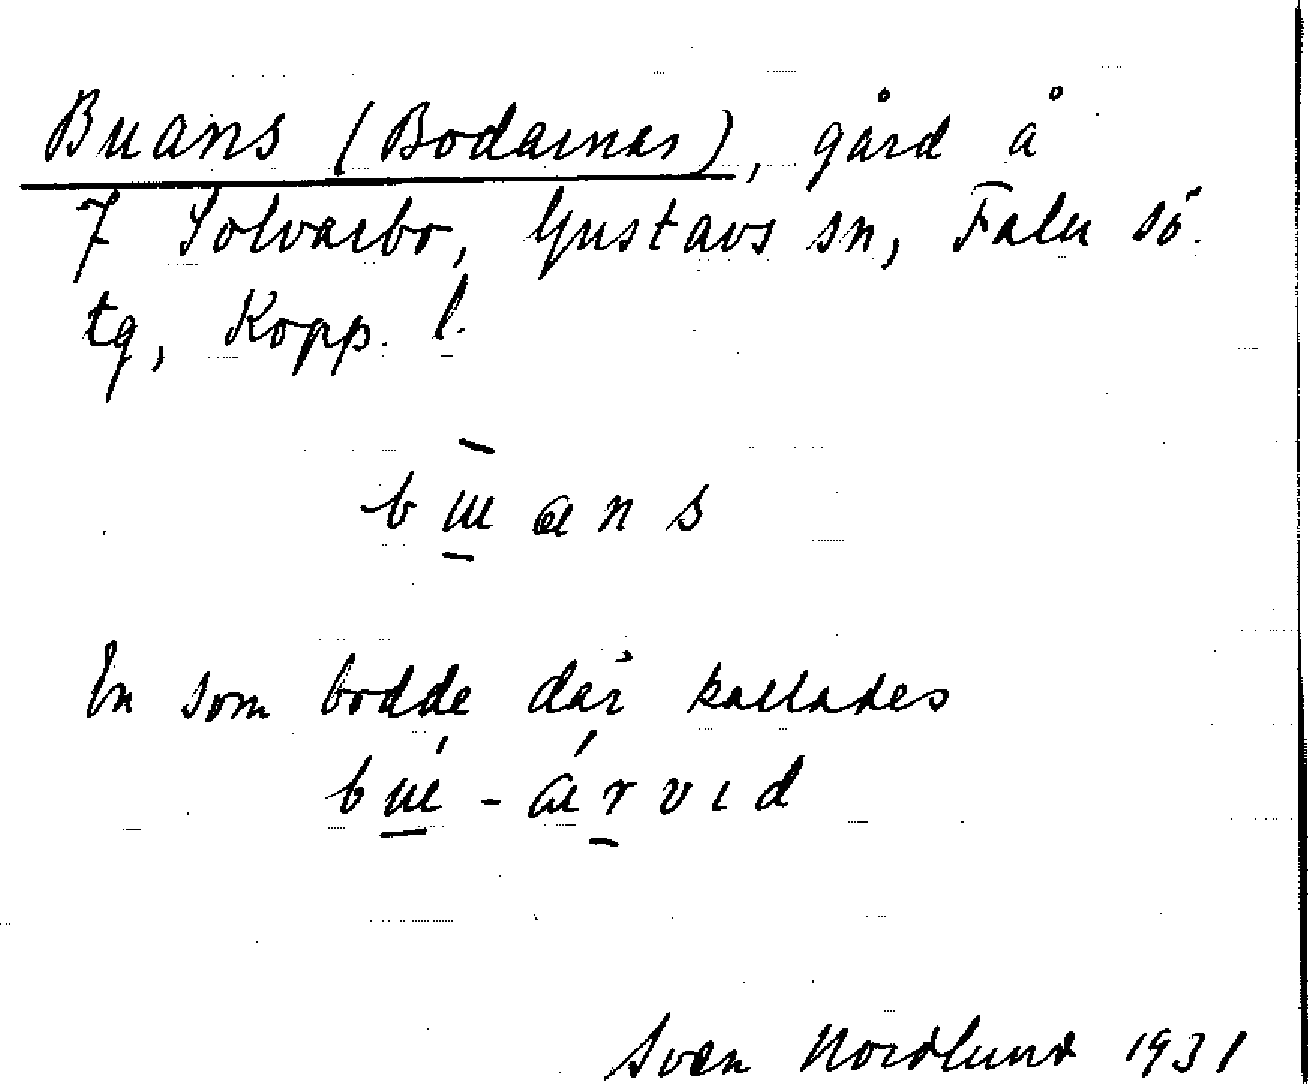 Buans (Bodarnas), gård å
7 Solvarbo, Gustavs sn, Falu sö.
tg, Kopp. l.
En som bodde där kallades
Sven Nordlund 1931